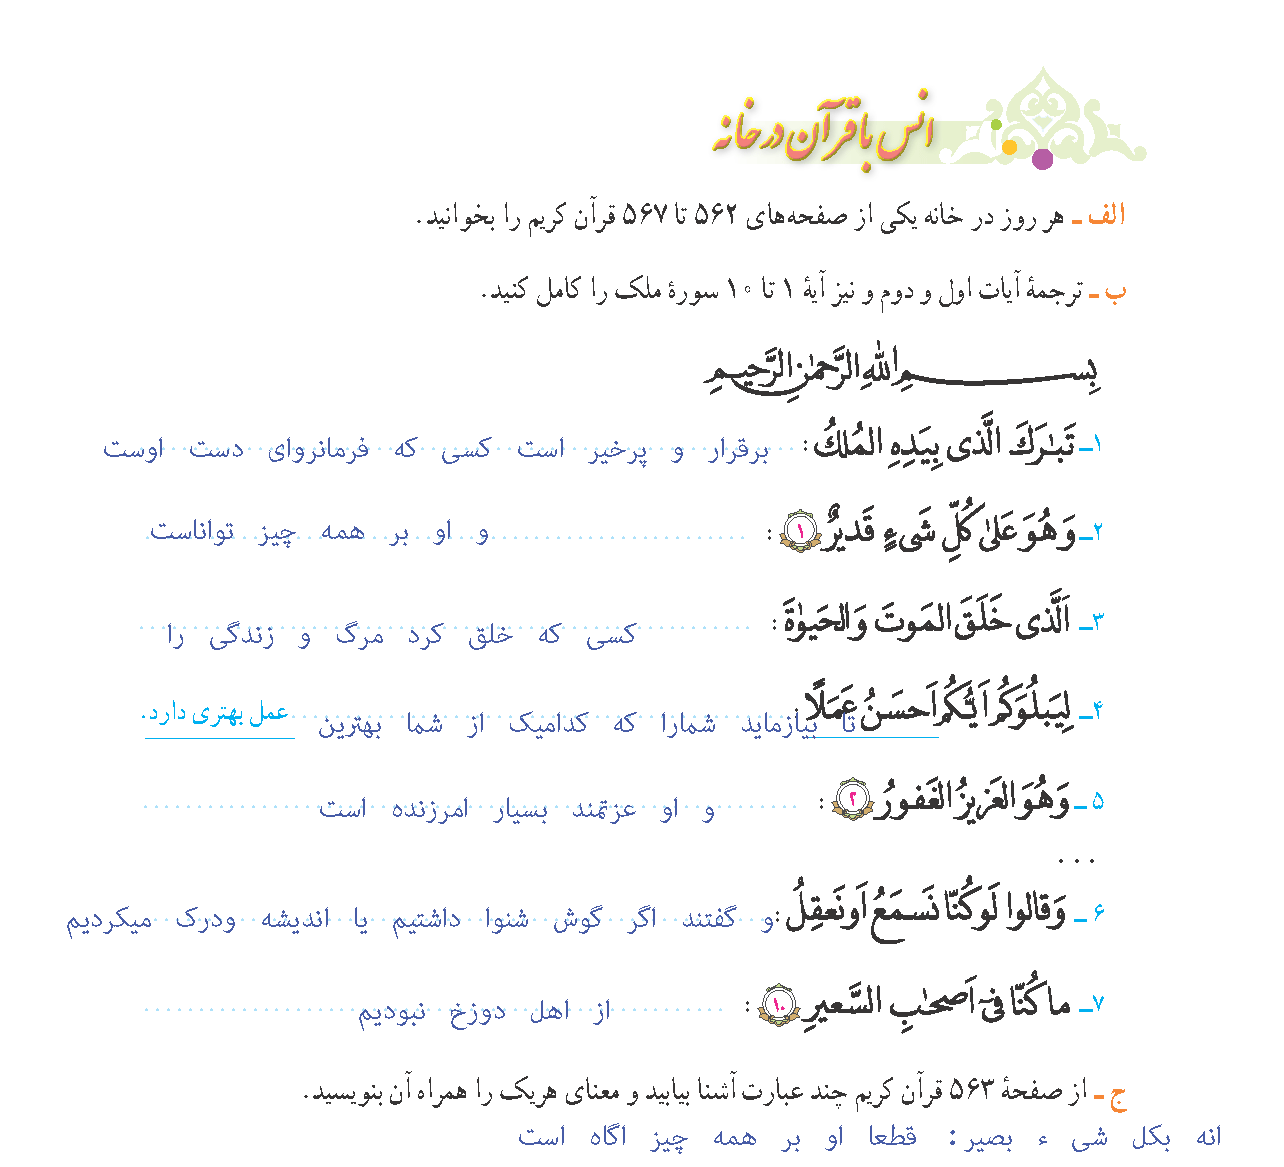 انس با قرآن در خانه
الف ـ هر روز در خانه یکی از صفحه‌های ۵۶۲ تا ۵۶۷ قرآن کریم را بخوانید.
ب ـ ترجمهٔ آیات اول و دوم و نیز آیهٔ ۱ تا ۱۰ سورهٔ ملک را کامل کنید.
بِسمِ اللّٰهِ الرَّحمٰنِ الرَّحیمِ
۱ـ تَبٰرَكَ الَّذی بِیَدِهِ المُلكُ : برقرار و پرخیر است کسی که فرمانروای دست اوست
۲ـ وَ هُوَ عَلیٰ كُلِّ شَیءٍ قَدیرٌ ۱ : و او بر همه چیز تواناست
۳ـ اَلَّذی خَلَقَ المَوتَ وَ الحَیوٰةَ : کسی که خلق کرد مرگ و زندگی را
۴ـ لِیَبلُوَكُم اَیُّكُم اَحسَنُ عَمَلًا : تا بیازماید شمارا که کدامیک از شما بهترین عمل بهتری دارد.
۵ـ وَ هُوَ العَزیزُ الغَفورُ ۲ : و او عزتمند بسیار امرزنده است
...
۶ـ وَ قالوا لَو كُنّا نَسمَعُ اَو نَعقِلُ : و گفتند اگر گوش شنوا داشتیم یا اندیشه ودرک میکردیم
۷ـ ما كُنّا فی اَصحٰبِ السَّعیرِ ۱۰ : از اهل دوزخ نبودیم
ج ـ از صفحهٔ ۵۶۳ قرآن کریم چند عبارت آشنا بیابید و معنای هریک را همراه آن بنویسید.
انه بکل شی ء بصیر : قطعا او بر همه چیز اگاه است